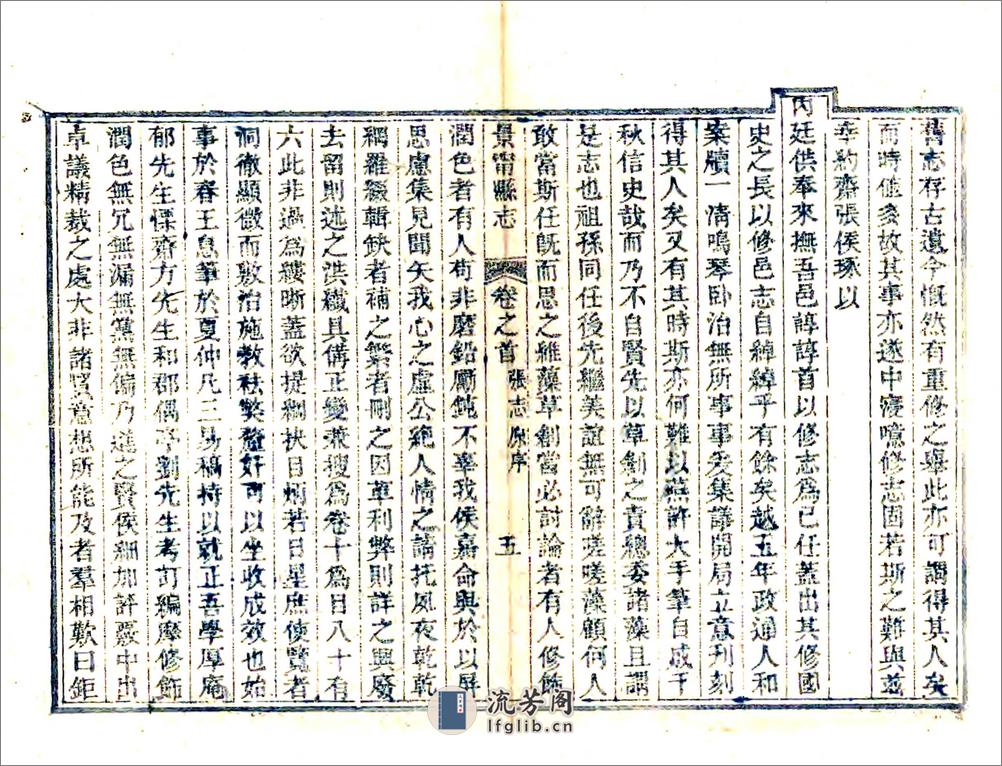 舊志存古遺今慨然有重修之舉此亦可謂得其人矣
而時值多故其事亦遂中寢噫修志固若斯之難與茲
幸約齋張侯琢以
內廷供奉來撫吾邑諄諄首以修志爲己任蓋出其修國
史之長以修邑志自綽綽乎有餘矣越五年政通人和
案牘一清鳴琴卧治無所事事爰集議開局立意刊刻
得其人矣又有其時斯亦何難以燕許大手筆自成千
秋信史哉而乃不自賢先以草創之責總委諸藻且謂
是志也祖孫同任後先繼美誼無可辭嗟嗟藻顧何人
敢當斯任旣而思之雖藻草創當必討論者有人修飾
景甯縣志 卷之首 張志原序 五
潤色者有人苟非磨鉛勵鈍不辜我侯嘉命與於以屏
思慮集見聞矢我心之虛公絶人情之請托夙夜乾乾
網羅綴輯缺者補之繁者刪之因革利弊則詳之興廢
去留則述之洪纖具備正變兼搜爲卷十爲目八十有
六此非過爲縷晰蓋欲提綱抉目炳若日星庶使覽者
洞徹顯微而敷治施教祛弊釐奸可以坐收成效也始
事於春王息筆於夏仲凡三易稿持以就正吾學厚庵
郁先生慄齋方先生和郡偶亭劉先生考訂編摩修飾
潤色無冗無漏無黨無偏乃進之賢侯細加評覈中出
卓議精裁之處大非諸賢意想所能及者羣相歎曰鉅
流芳阁
lfglib.cn